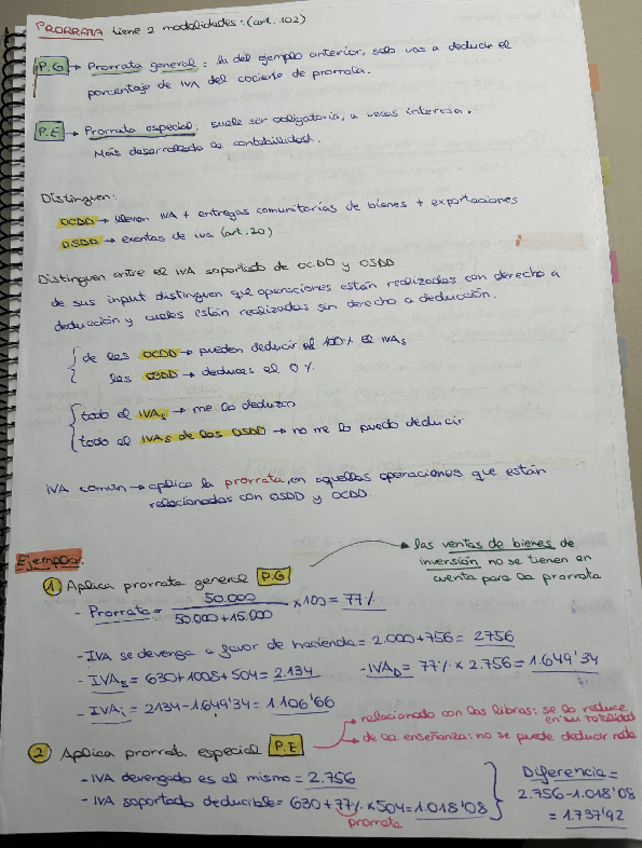 PRORRATA tiene 2 modalidades: (art. 102)
P.G → Prorrata general: la del ejemplo anterior, solo vas a deducir el
porcentaje de IVA del cociente de prorrata.
P.E → Prorrata especial: suele ser obligatoria, a veces interesa.
Más desarrollada la contabilidad.
Distinguen:
OCDD → llevan IVA + entregas comunitarias de bienes + exportaciones
OSDD → exentas de iva (art. 20)
Distinguen entre el IVA soportado de OCDD y OSDD
de sus input distinguen que operaciones están realizadas con derecho a
deducción y cuales están realizadas sin derecho a deducción.
de las OCDD → pueden deducir el 100% el IVAs
las OSDD → deduces el 0%.
todo el IVAs → me lo deduzco
todo el IVAs de las OSDD → no me lo puedo deducir
IVA común → aplico la prorrata, en aquellas operaciones que están
relacionadas con OSDD y OCDD.
Ejemplo:
las ventas de bienes de
inversión no se tienen en
cuenta para la prorrata
1 Aplica prorrata general P.G
- Prorrata = 50.000 / 50.000 + 15.000 x 100 = 77%
- IVA se devenga a favor de hacienda = 2.000 + 756 = 2756
- IVAs = 630 + 1008 + 504 = 2.134 - IVAD = 77% x 2.756 = 1.649'34
- IVAi = 2134 - 1.649'34 = 1.106'66
relacionado con los libros: se lo reduce
en su totalidad
de la enseñanza: no se puede deducir nada
2 Aplica prorrata especial P.E
- IVA devengado es el mismo = 2.756
- IVA soportado deducible = 630 + 77% x 504 = 1.018'08
prorrata
Diferencia =
2.756 - 1.018'08
= 1.737'92